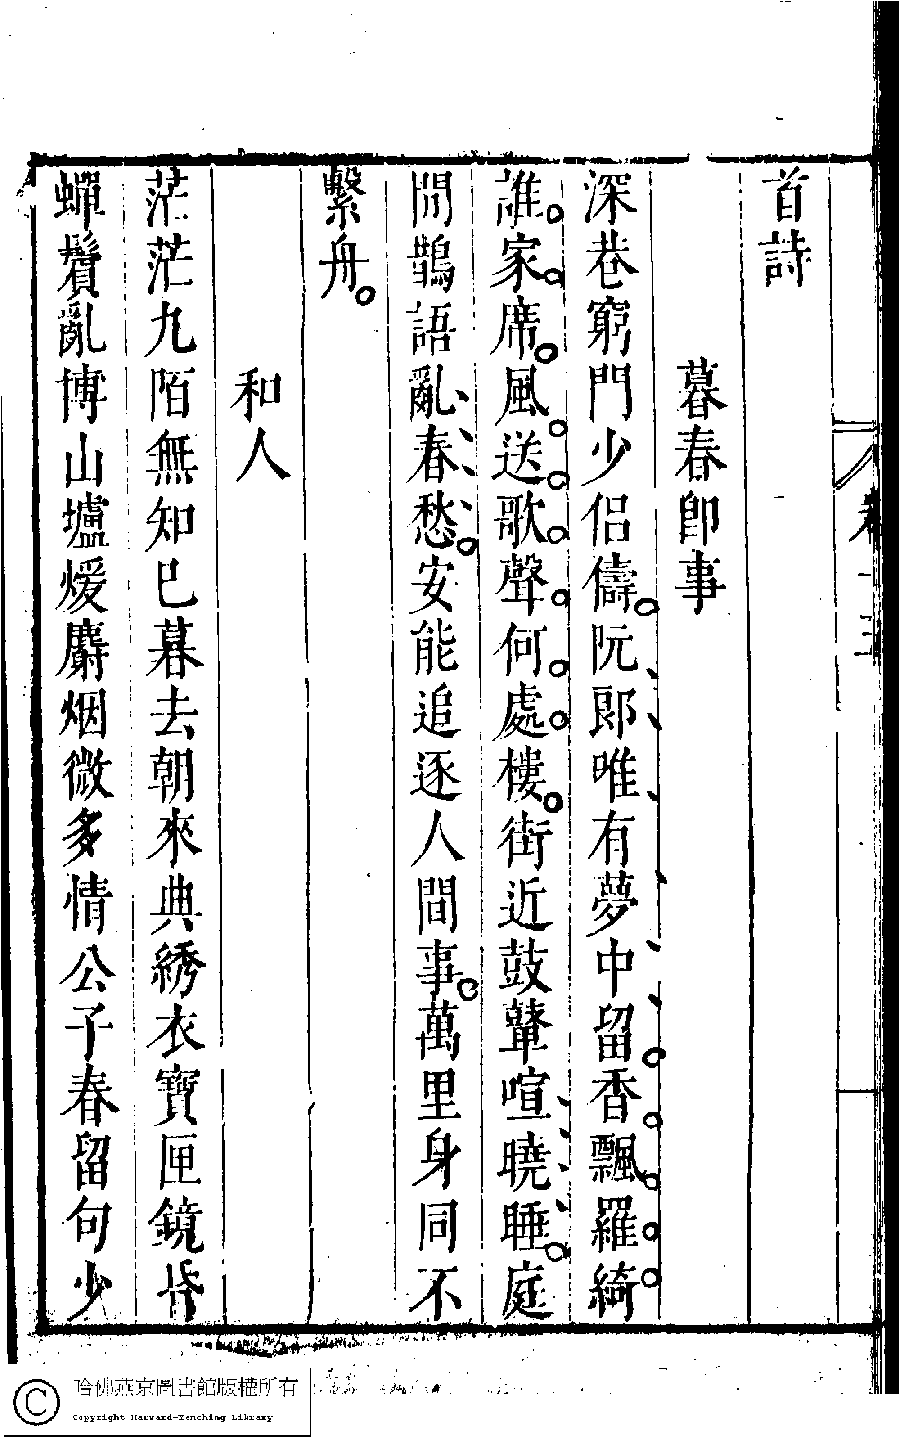 首詩
暮春卽事
深巷窮門少侶儔阮郎唯有夢中留香飄羅綺
誰家席風送歌聲何處樓街近鼓鼙喧曉睡庭
閒鵲語亂春愁安能追逐人間事萬里身同不
繫舟
和人
茫茫九陌無知己暮去朝來典綉衣寶匣鏡昏
蟬鬢亂博山壚煖麝烟微多情公子春留句少
卷十三
哈佛燕京圖書館版權所有
Copyright Harvard-Yenching Library